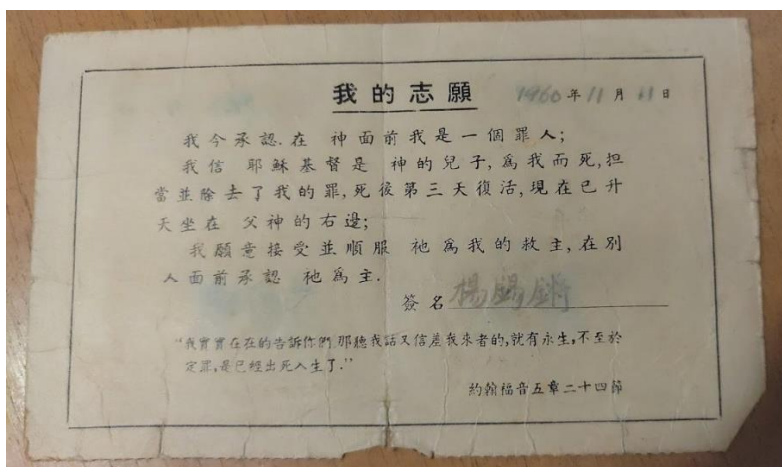 我的志願 1960年11月11日
我今承認.在 神面前我是一個罪人;
我信 耶穌基督是 神的兒子,為我而死,担
當並除去了我的罪,死後第三天復活,現在已升
天坐在 父神的右邊;
我願意接受並順服 祂為我的救主,在別
人面前承認 祂為主.
簽名 楊錫鏘
“我實實在在的告訴你們,那聽我話又信差我來者的,就有永生,不至於
定罪,是已經出死入生了.”
約翰福音五章二十四節